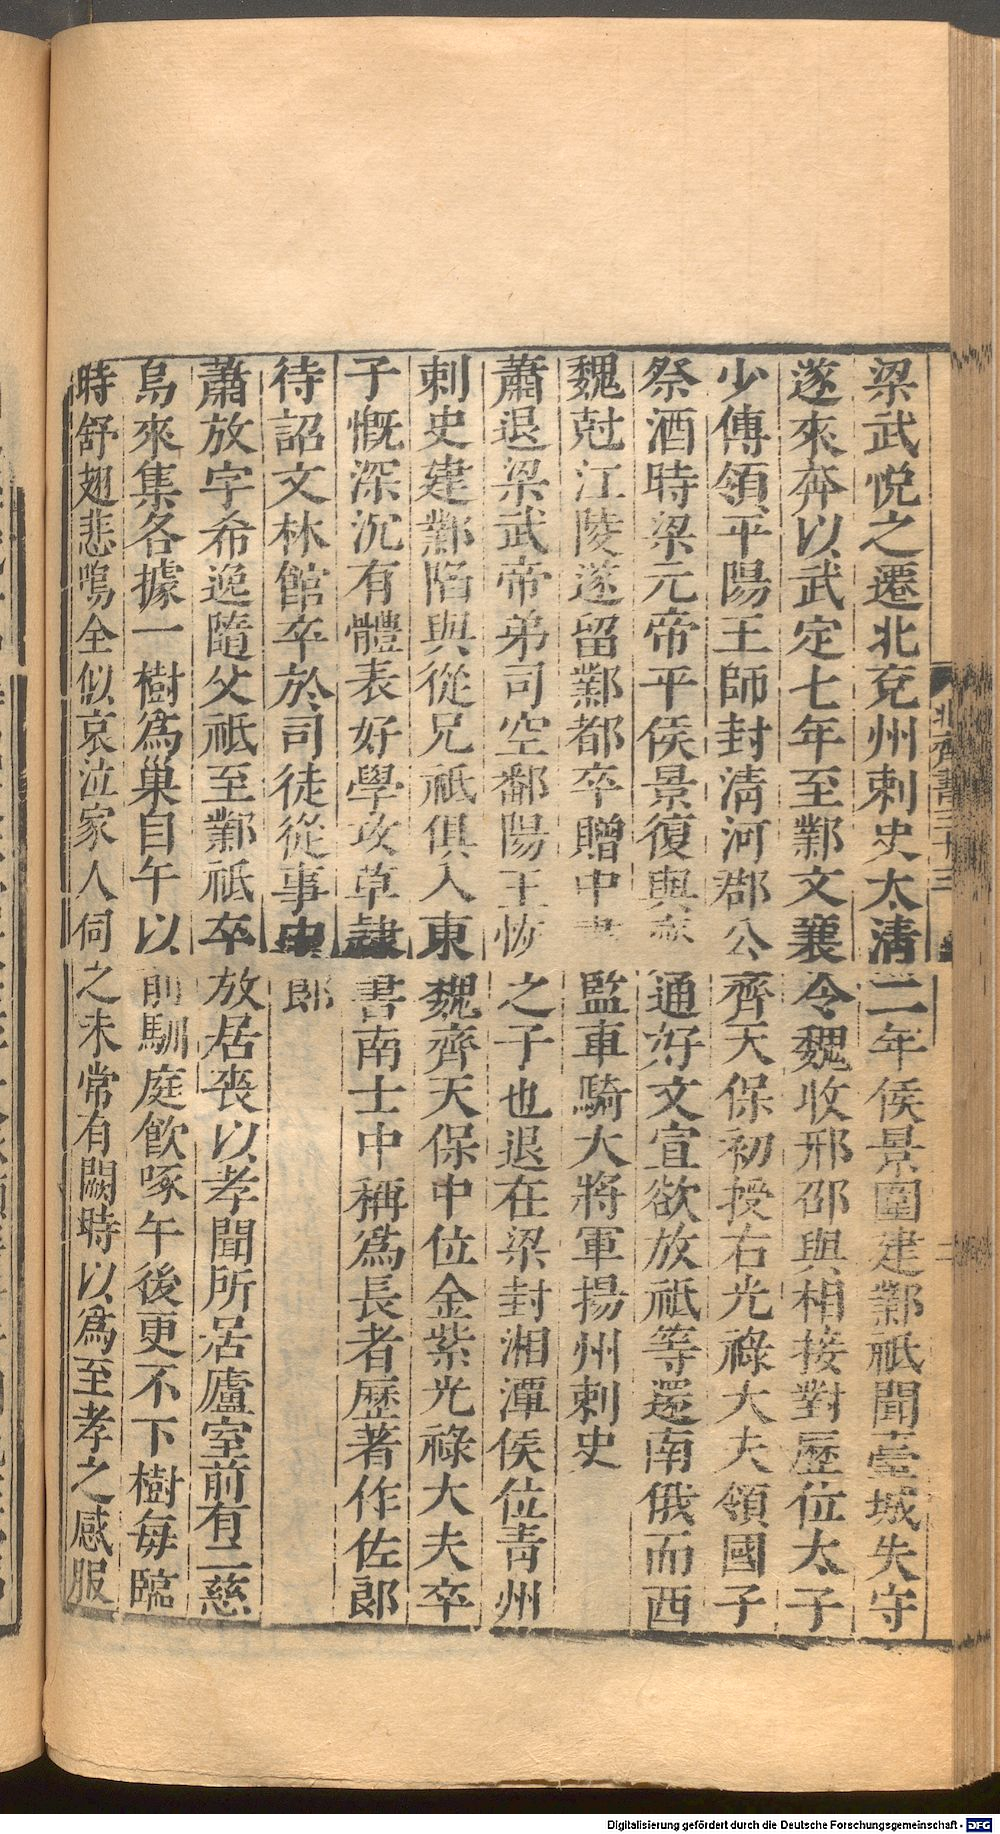 梁武悅之遷北兗州刺史太淸二年侯景圍建鄴祇聞臺城失守
遂來奔以武定七年至鄴文襄令魏收邢邵與相接對歷位太子
少傅領平陽王師封淸河郡公齊天保初授右光祿大夫領國子
祭酒時梁元帝平侯景復與齊通好文宣欲放祇等還南俄而西
魏尅江陵遂留鄴都卒贈中書監車騎大將軍揚州刺史
蕭退梁武帝弟司空鄱陽王恢之子也退在梁封湘潭侯位靑州
刺史建鄴陷與從兄祇俱入東魏齊天保中位金紫光祿大夫卒
子慨深沉有體表好學攻草隷書南士中稱爲長者歷著作佐郎
待詔文林館卒於司徒從事中郎
蕭放字希逸隨父祇至鄴祇卒放居喪以孝聞所居廬室前有二慈
烏來集各據一樹爲巢自午以前馴庭飮啄午後更不下樹每臨
時舒翅悲鳴全似哀泣家人伺之未常有闕時以爲至孝之感服
北齊書三十三
二
Digitalisierung gefördert durch die Deutsche Forschungsgemeinschaft - DFG